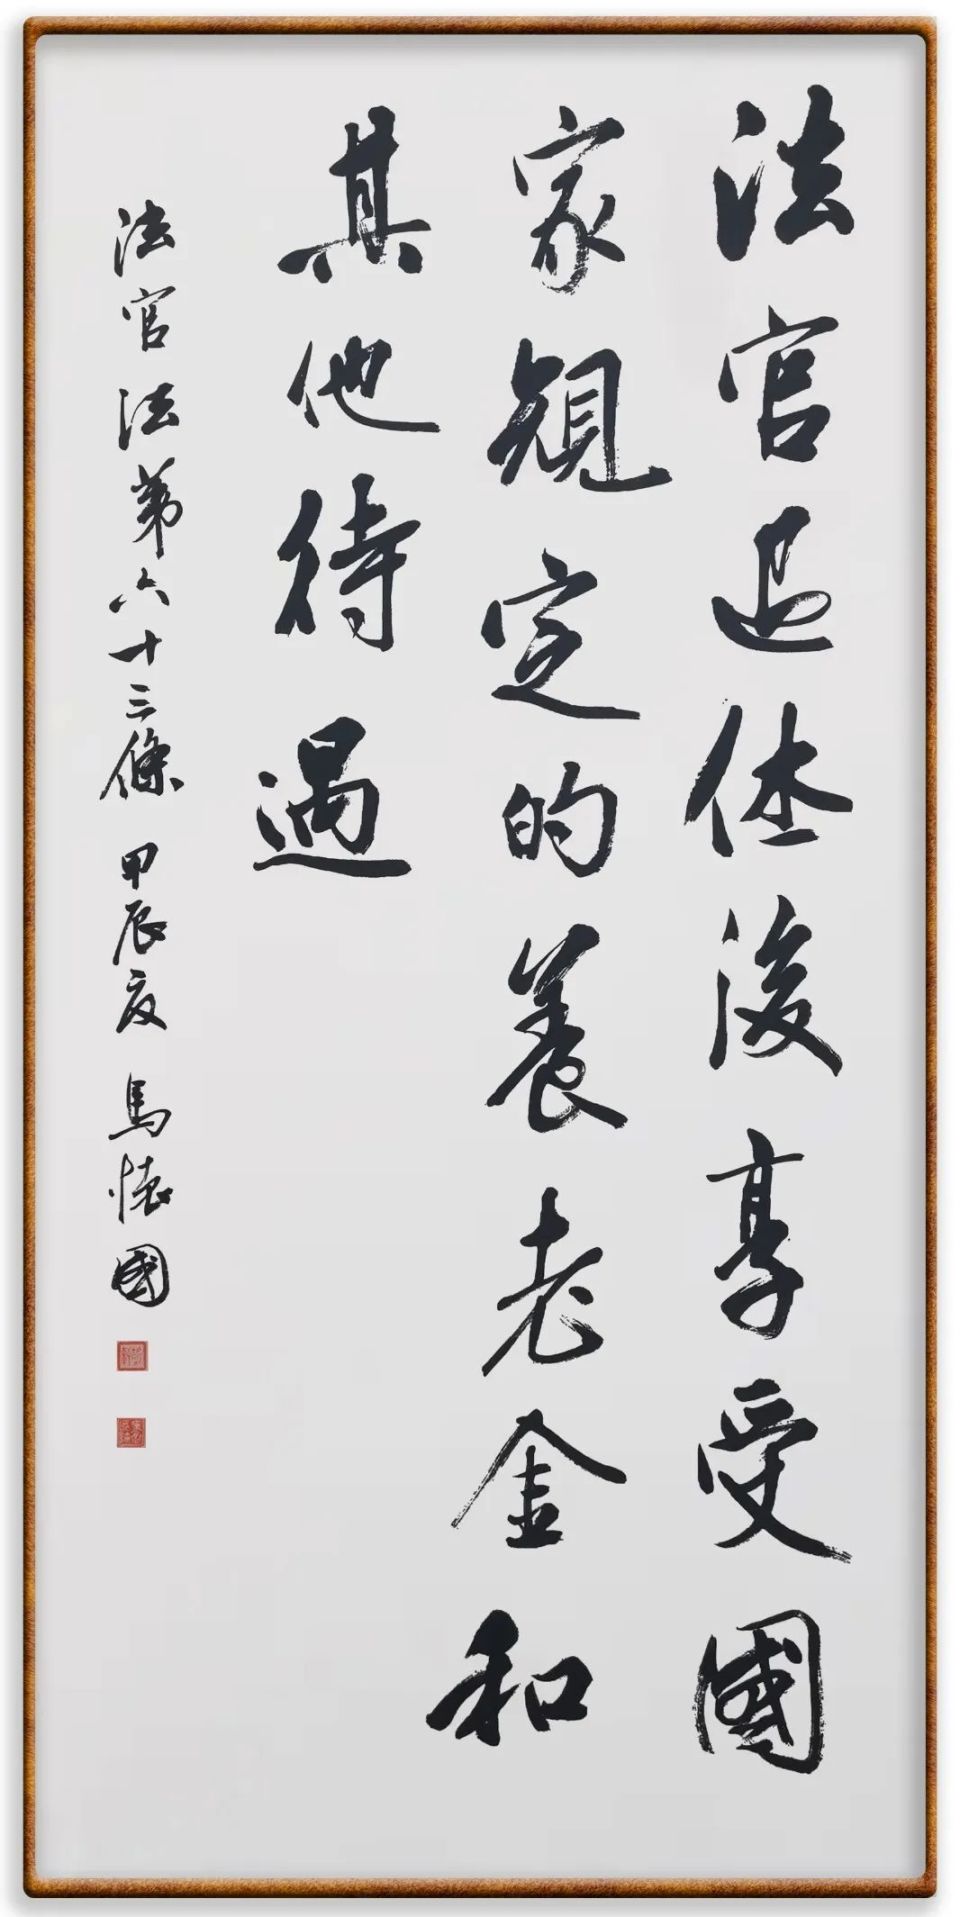 法官退休後享受國
家規定的養老金和
其他待遇
法官法第六十三條 甲辰夏 馬懷國